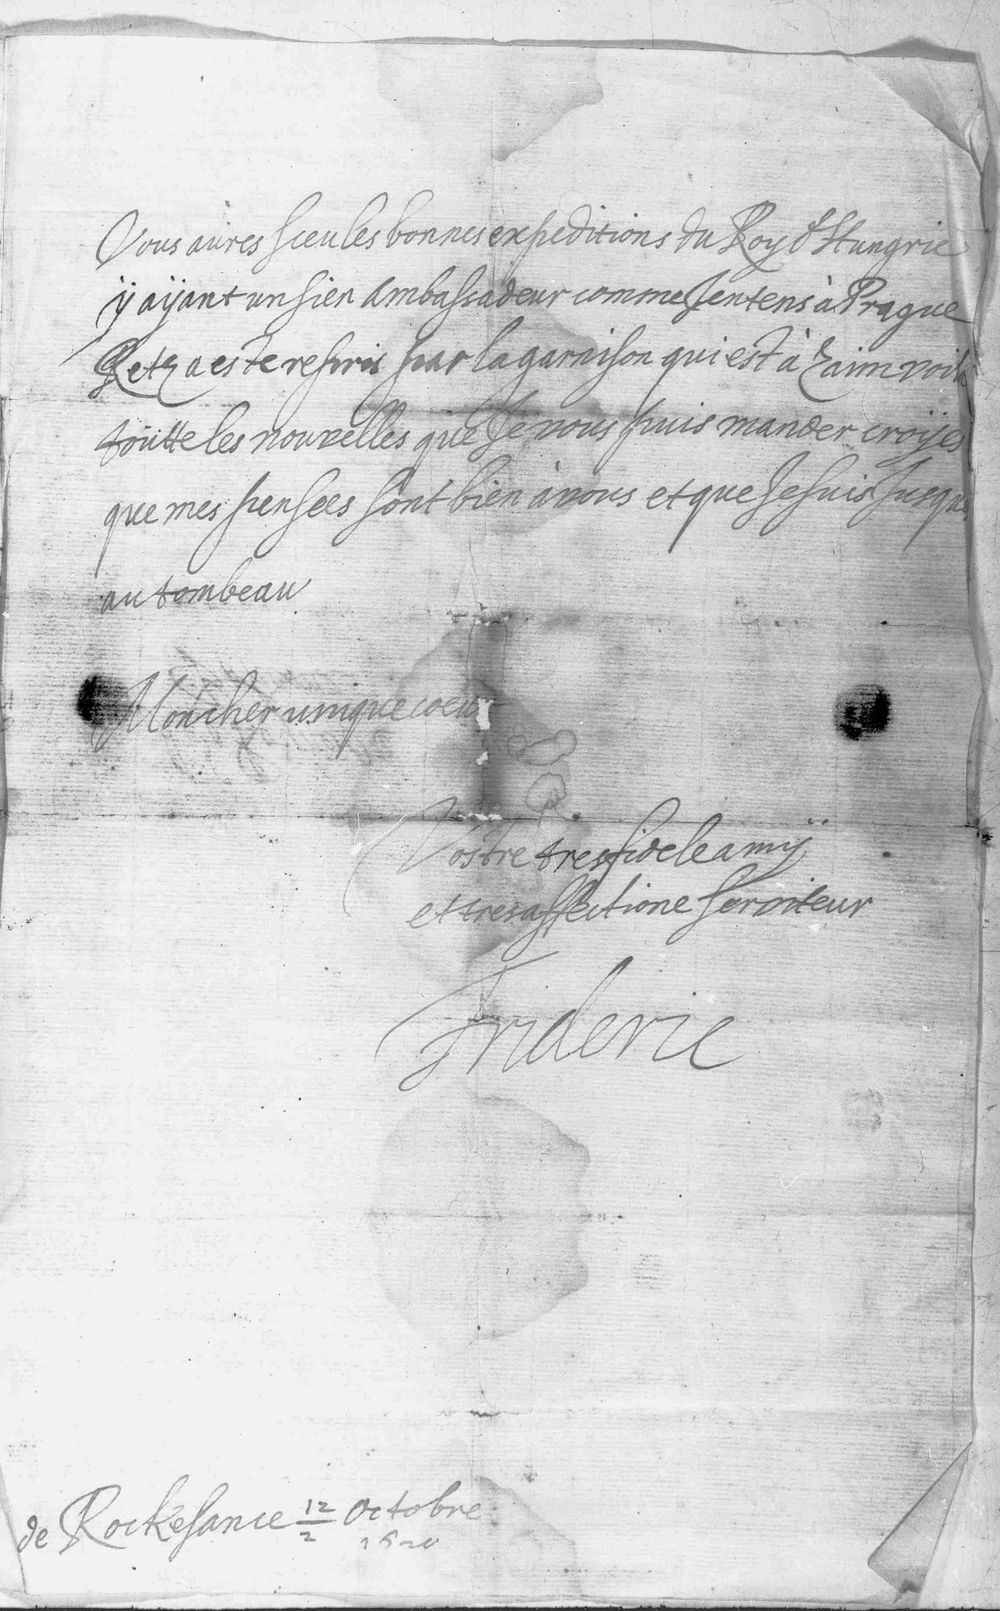 Vous aures sceu les bonnes expeditions du Roy d'Hungrie
ÿ aÿant un sien Ambassadeur comme J'entens à Prague
Retz a este repris par la garnison qui est à Znaim voila
toutte les nouvelles que Je vous puis mander croÿes
que mes pensees sont bien à vous et que Je suis Jusque
au tombeau
Mon cher unique coeur
Vostre tresfidele amÿ
et tresaffectione serviteur
Frideric
de Rockesane 12/2 Octobre
1620